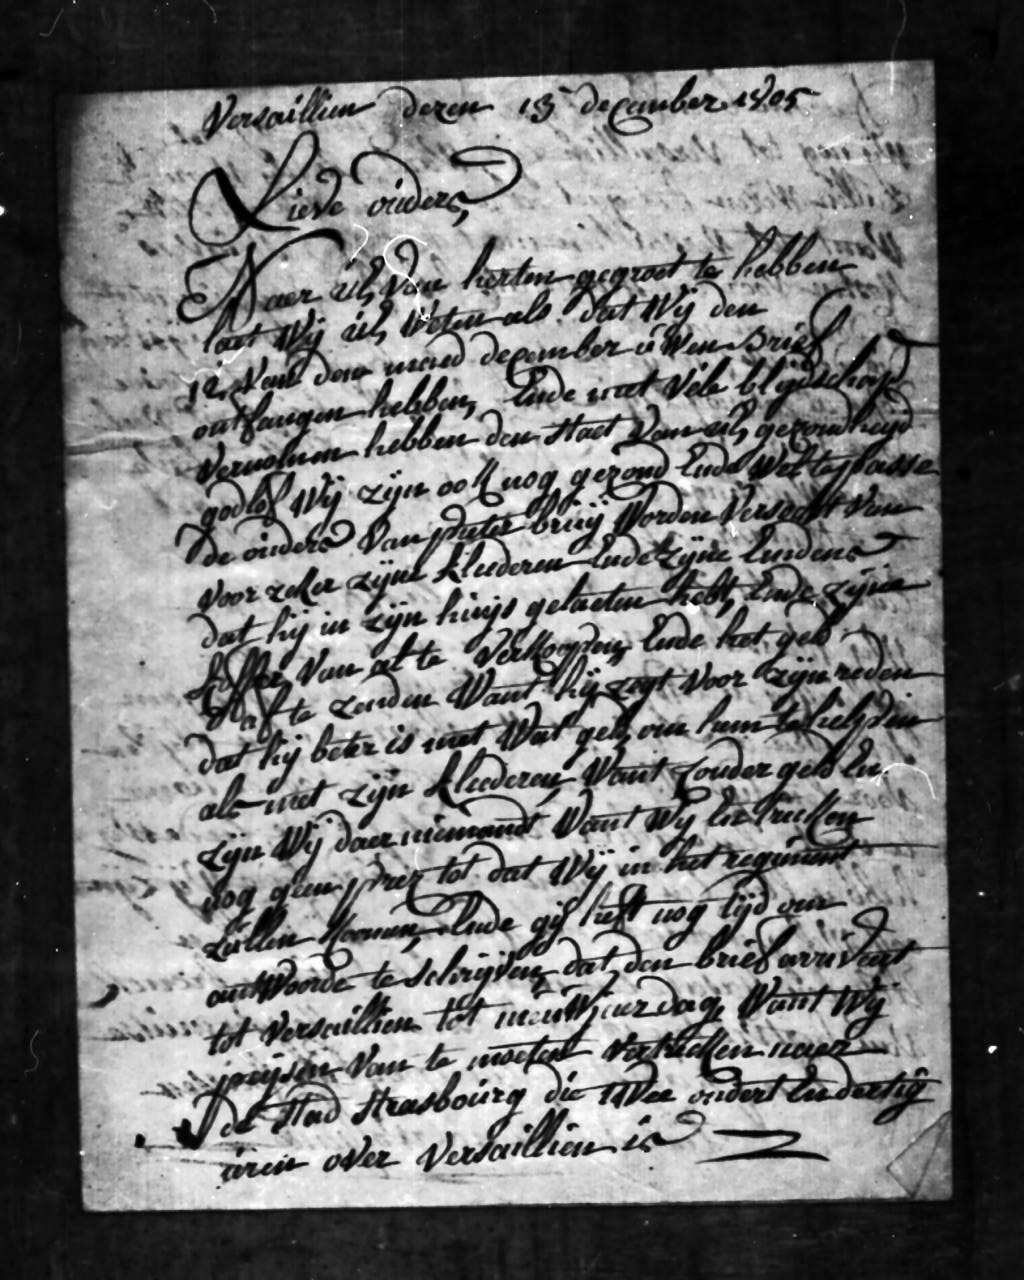 Versaillien dezen 13 december 1805
Lieve ouders,
Naer ul, van herten gegroet te hebben
laet Wij ul, Weten als dat Wij den
12 van den maend december u Wen brief
ontfangen hebben, Ende met vele blijdschap
vernomen hebben den staet van ul, gezondheijd
godlof Wij zijn ook nog gezond Ende Wel te passe
de ouders van pieter bruij Worden versocht van
voor zeker zijne kleederen Ende zijne
dat hij in zijn huijs gelaeten heft, Ende zijne
van al te verkoopen, Ende het geld
af te zenden Want hij zegt voor zijn reden
dat hij beter is met Wat geld, om hem te helpen
als met zijn kleederen, Want zonder geld En
zijn Wij daer niemandt Want Wij En trekken
nog geen prez tot dat Wij in het regiment
zullen komen, Ende gij heft nog tijd om
antWoorde te schrijven, dat den brief arriveert
tot versaillien tot nieuWjaer dag, Want Wij
peijsen van te moeten vertrekken naer
de stad strasbourg die tWee ondert En dertig
uren over versaillien is